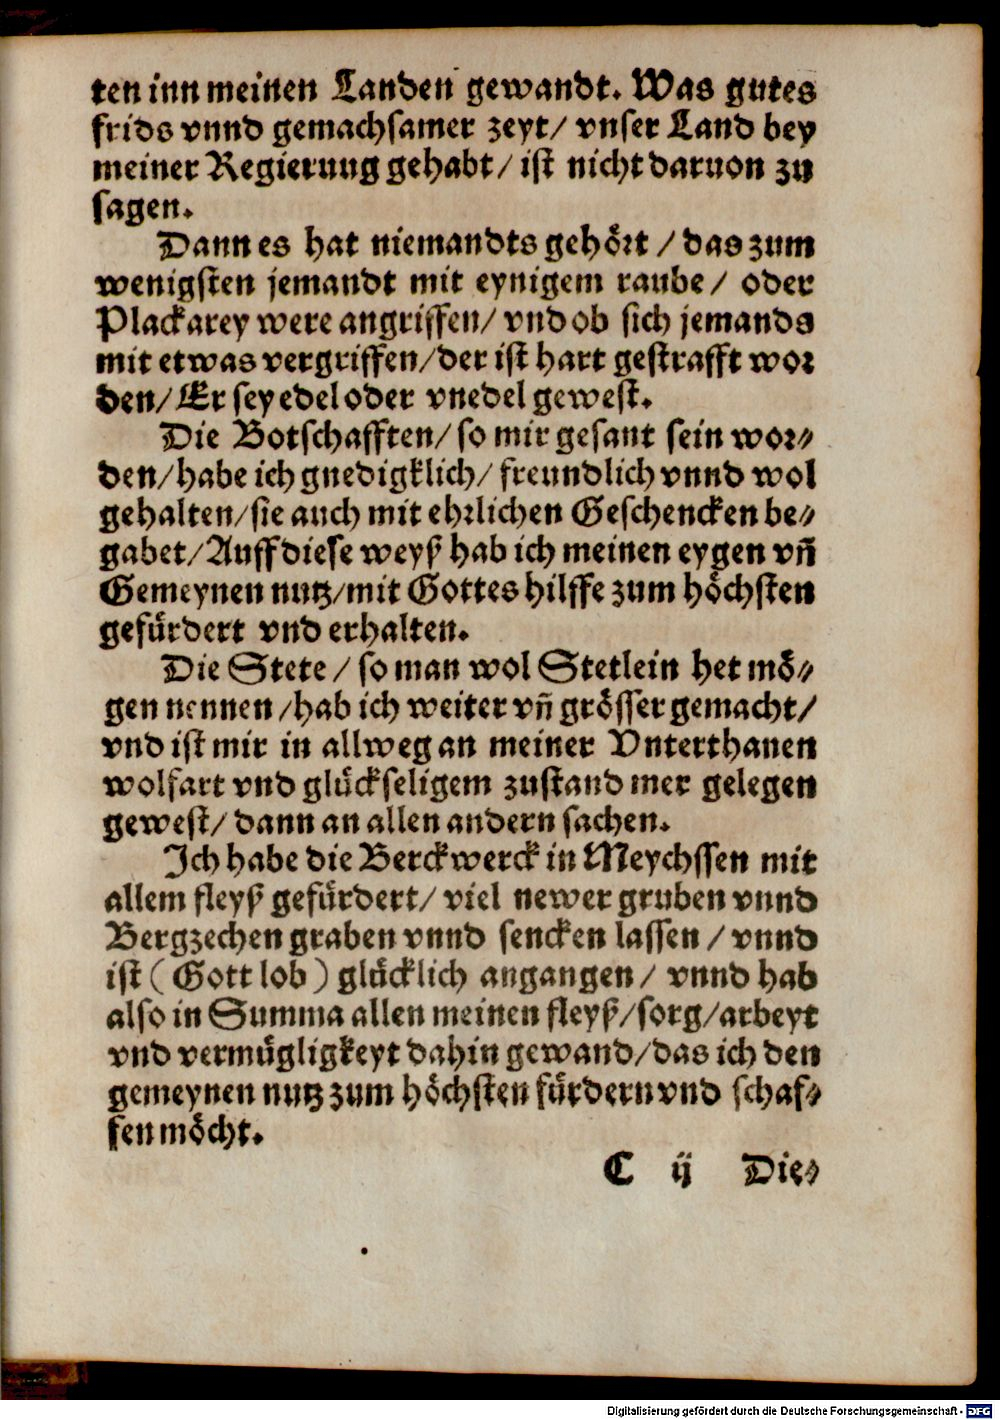 ten inn meinen Landen gewandt. Was gutes
frids vnnd gemachsamer zeyt/ vnser Land bey
meiner Regierung gehabt/ ist nicht daruon zu
sagen.
Dann es hat niemandts gehört / das zum
wenigsten jemandt mit eynigem raube/ oder
Plackarey were angriffen/ vnd ob sich jemands
mit etwas vergriffen/der ist hart gestrafft wor
den/ Er sey edel oder vnedel gewest.
Die Botschafften/ so mir gesant sein wor⸗
den/habe ich gnedigklich/ freundlich vnnd wol
gehalten/sie auch mit ehrlichen Geschencken be⸗
gabet/Auff diese weyß hab ich meinen eygen vñ
Gemeynen nutz/mit Gottes hilffe zum höchsten
gefürdert vnd erhalten.
Die Stete / so man wol Stetlein het mö⸗
gen nennen/hab ich weiter vñ grösser gemacht/
vnd ist mir in allweg an meiner Vnterthanen
wolfart vnd glückseligem zustand mer gelegen
gewest/ dann an allen andern sachen.
Ich habe die Berckwerck in Meychssen mit
allem fleyß gefürdert/ viel newer gruben vnnd
Bergzechen graben vnnd sencken lassen / vnnd
ist (Gott lob) glücklich angangen/ vnnd hab
also in Summa allen meinen fleyß/sorg/arbeyt
vnd vermügligkeyt dahin gewand/das ich den
gemeynen nutz zum höchsten fürdern vnd schaf⸗
fen möcht.
C ij Die⸗
Digitalisierung gefördert durch die Deutsche Forschungsgemeinschaft - DFG